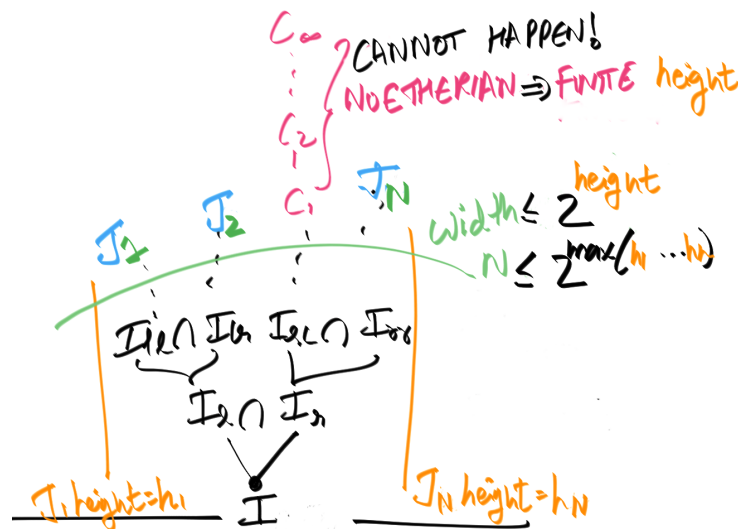 C∞
CANNOT HAPPEN!
NOETHERIAN ⇒ FINITE height
C2
C1
J1 J2 JN
width ≤ 2^height
N ≤ 2^max(h1 ... hN)
Ill ∩ Ilr Irl ∩ Irr
Il ∩ Ir
I
J1 height = h1
JN height = hN